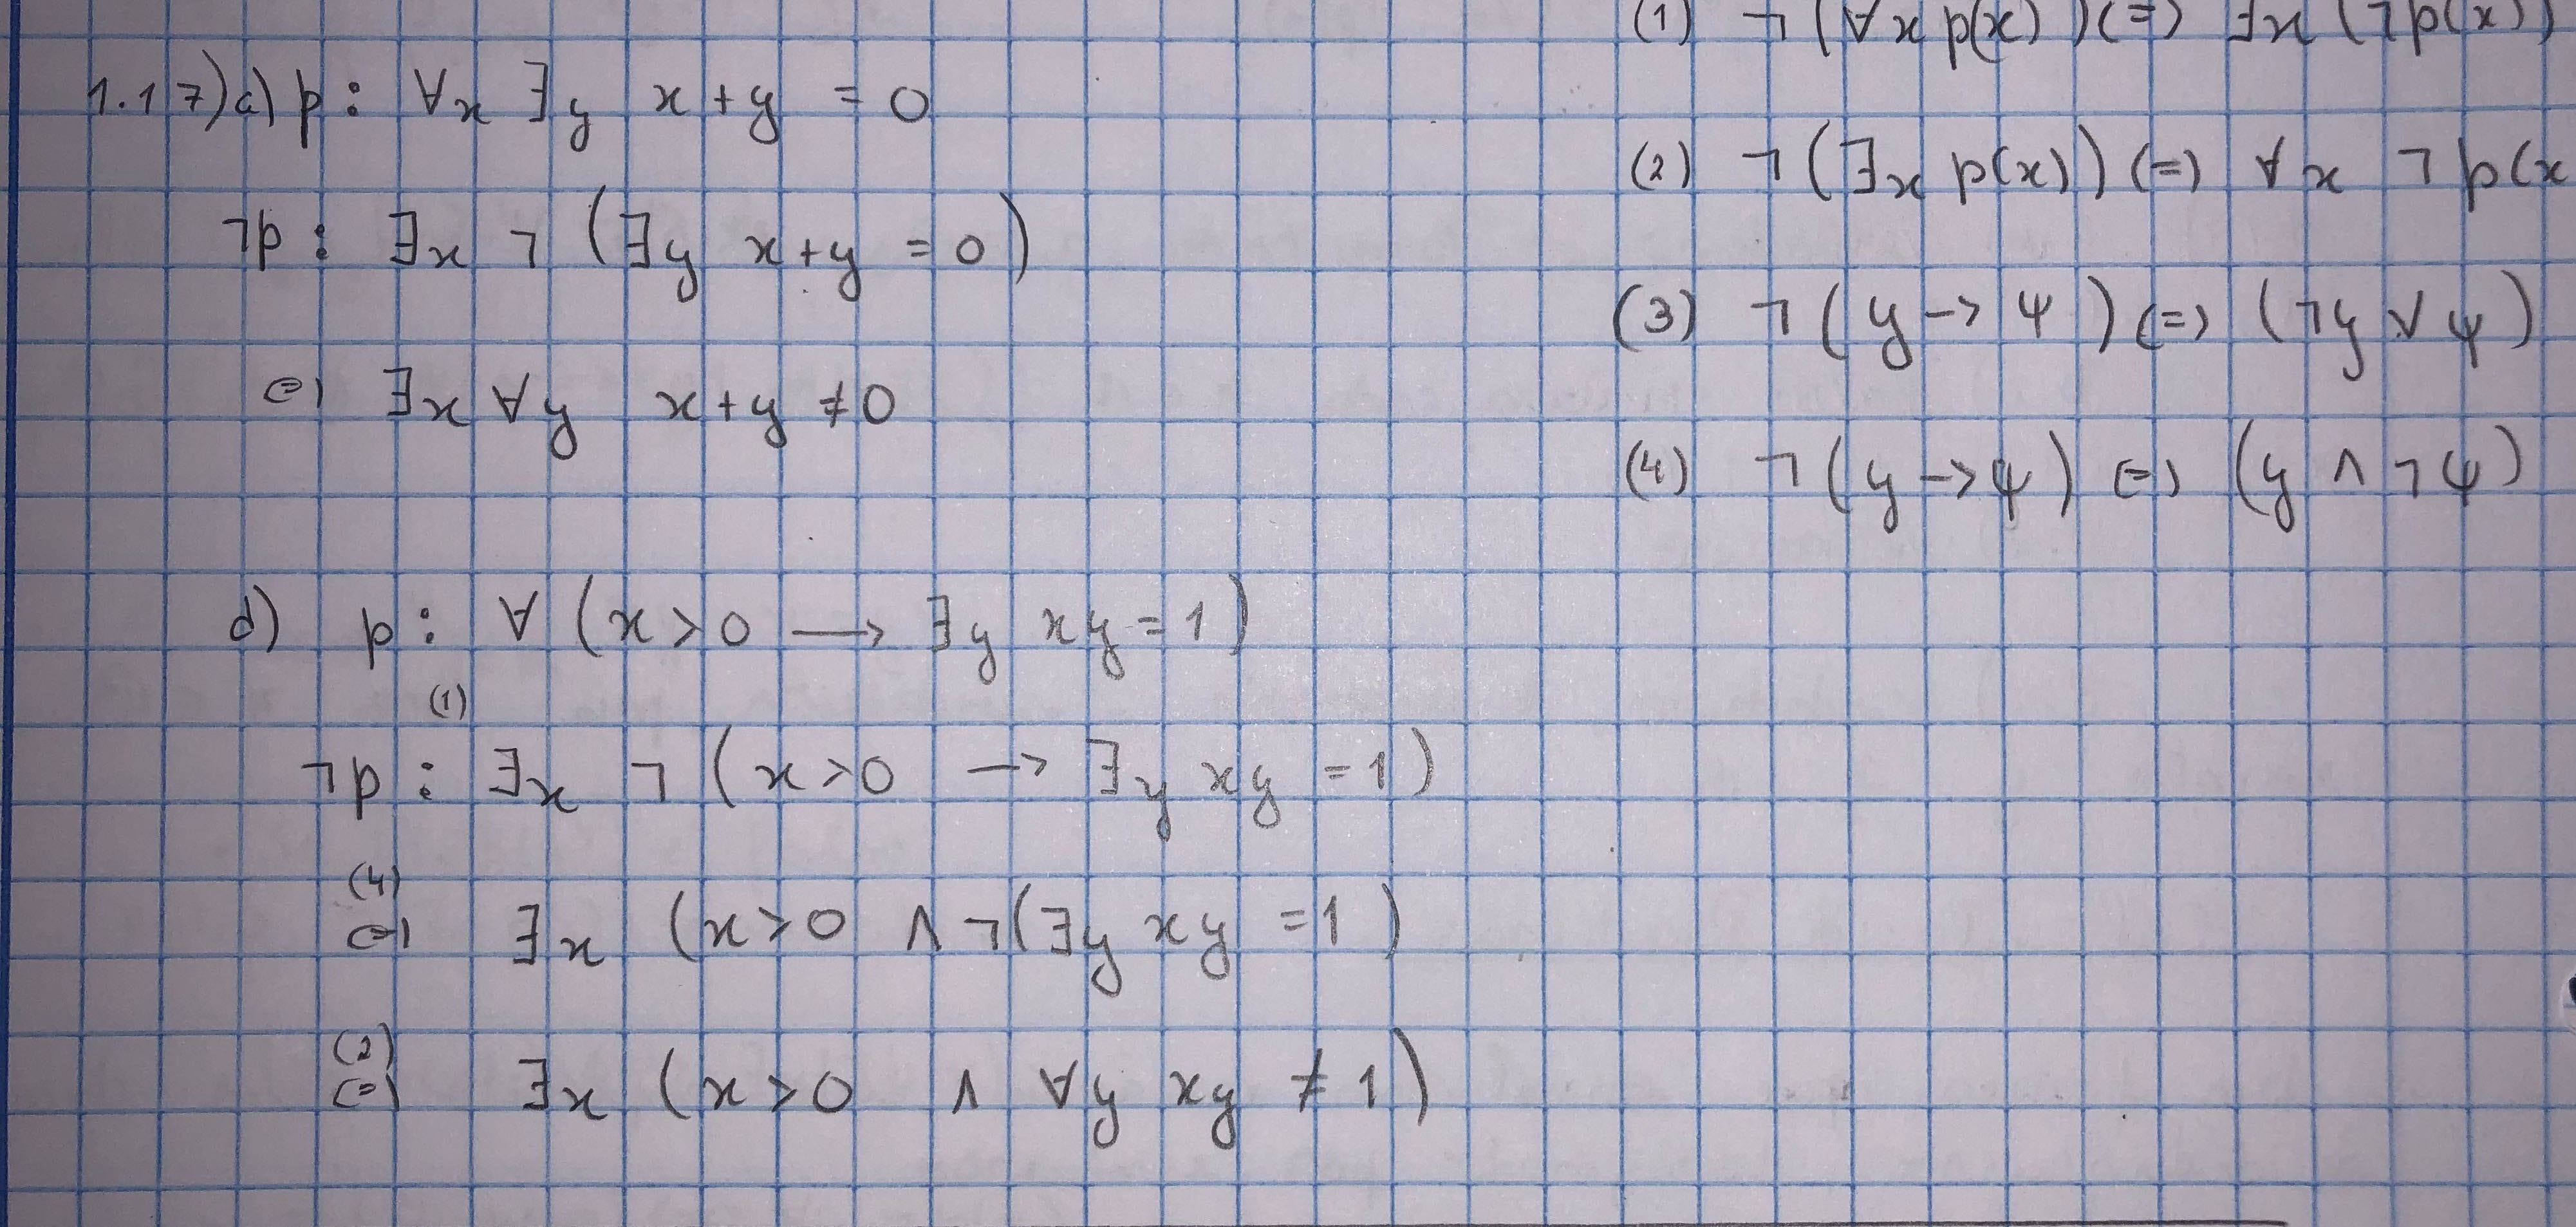 1.17) a) p : ∀x ∃y x+y = 0
¬p : ∃x ¬ (∃y x+y = 0)
(=) ∃x ∀y x+y ≠ 0
d) p : ∀ (x>0 → ∃y xy = 1)
(1)
¬p : ∃x ¬ (x>0 → ∃y xy = 1)
(4)
(=) ∃x (x>0 ∧ ¬(∃y xy = 1)
(2)
(=) ∃x (x>0 ∧ ∀y xy ≠ 1)
(1) ¬ (∀x p(x)) (=) ∃x (¬p(x))
(2) ¬ (∃x p(x)) (=) ∀x ¬ p(x
(3) ¬ (y → ψ) (=) (¬y ∨ ψ)
(4) ¬ (y → ψ) (=) (y ∧ ¬ψ)